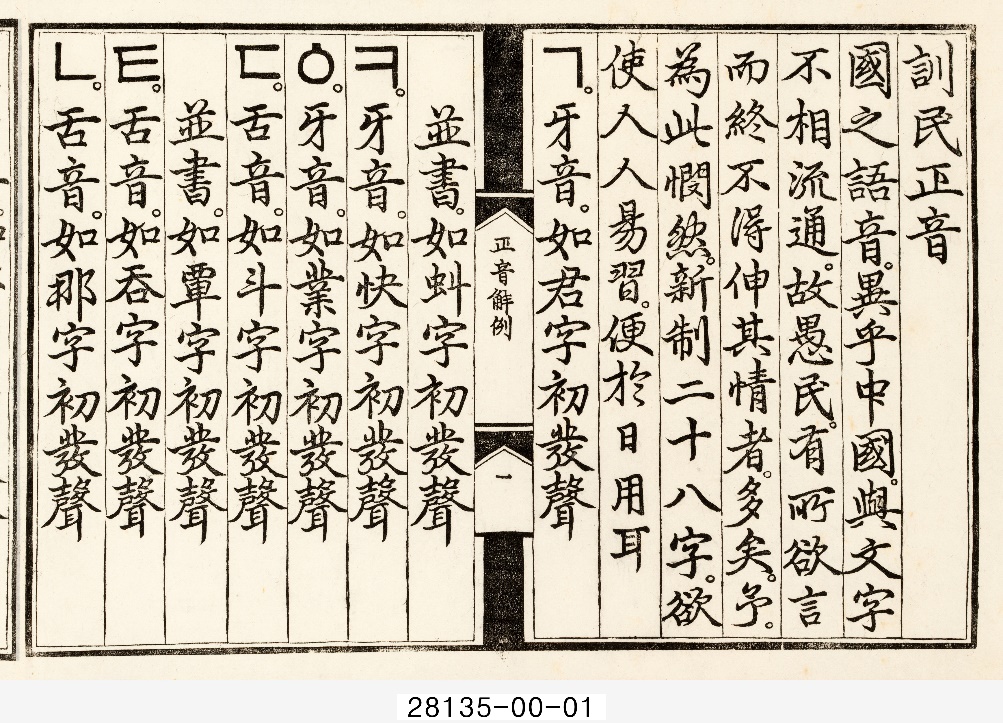 訓民正音
國之語音。異乎中國。與文字
不相流通。故愚民。有所欲言
而終不得伸其情者。多矣。予。
為此憫然。新制二十八字。欲
使人人易習。便於日用耳
ㄱ。牙音。如君字初發聲
正音解例
一
並書。如虯字初發聲
ㅋ。牙音。如快字初發聲
ㆁ。牙音。如業字初發聲
ㄷ。舌音。如斗字初發聲
並書。如覃字初發聲
ㅌ。舌音。如吞字初發聲
ㄴ。舌音。如那字初發聲
28135-00-01